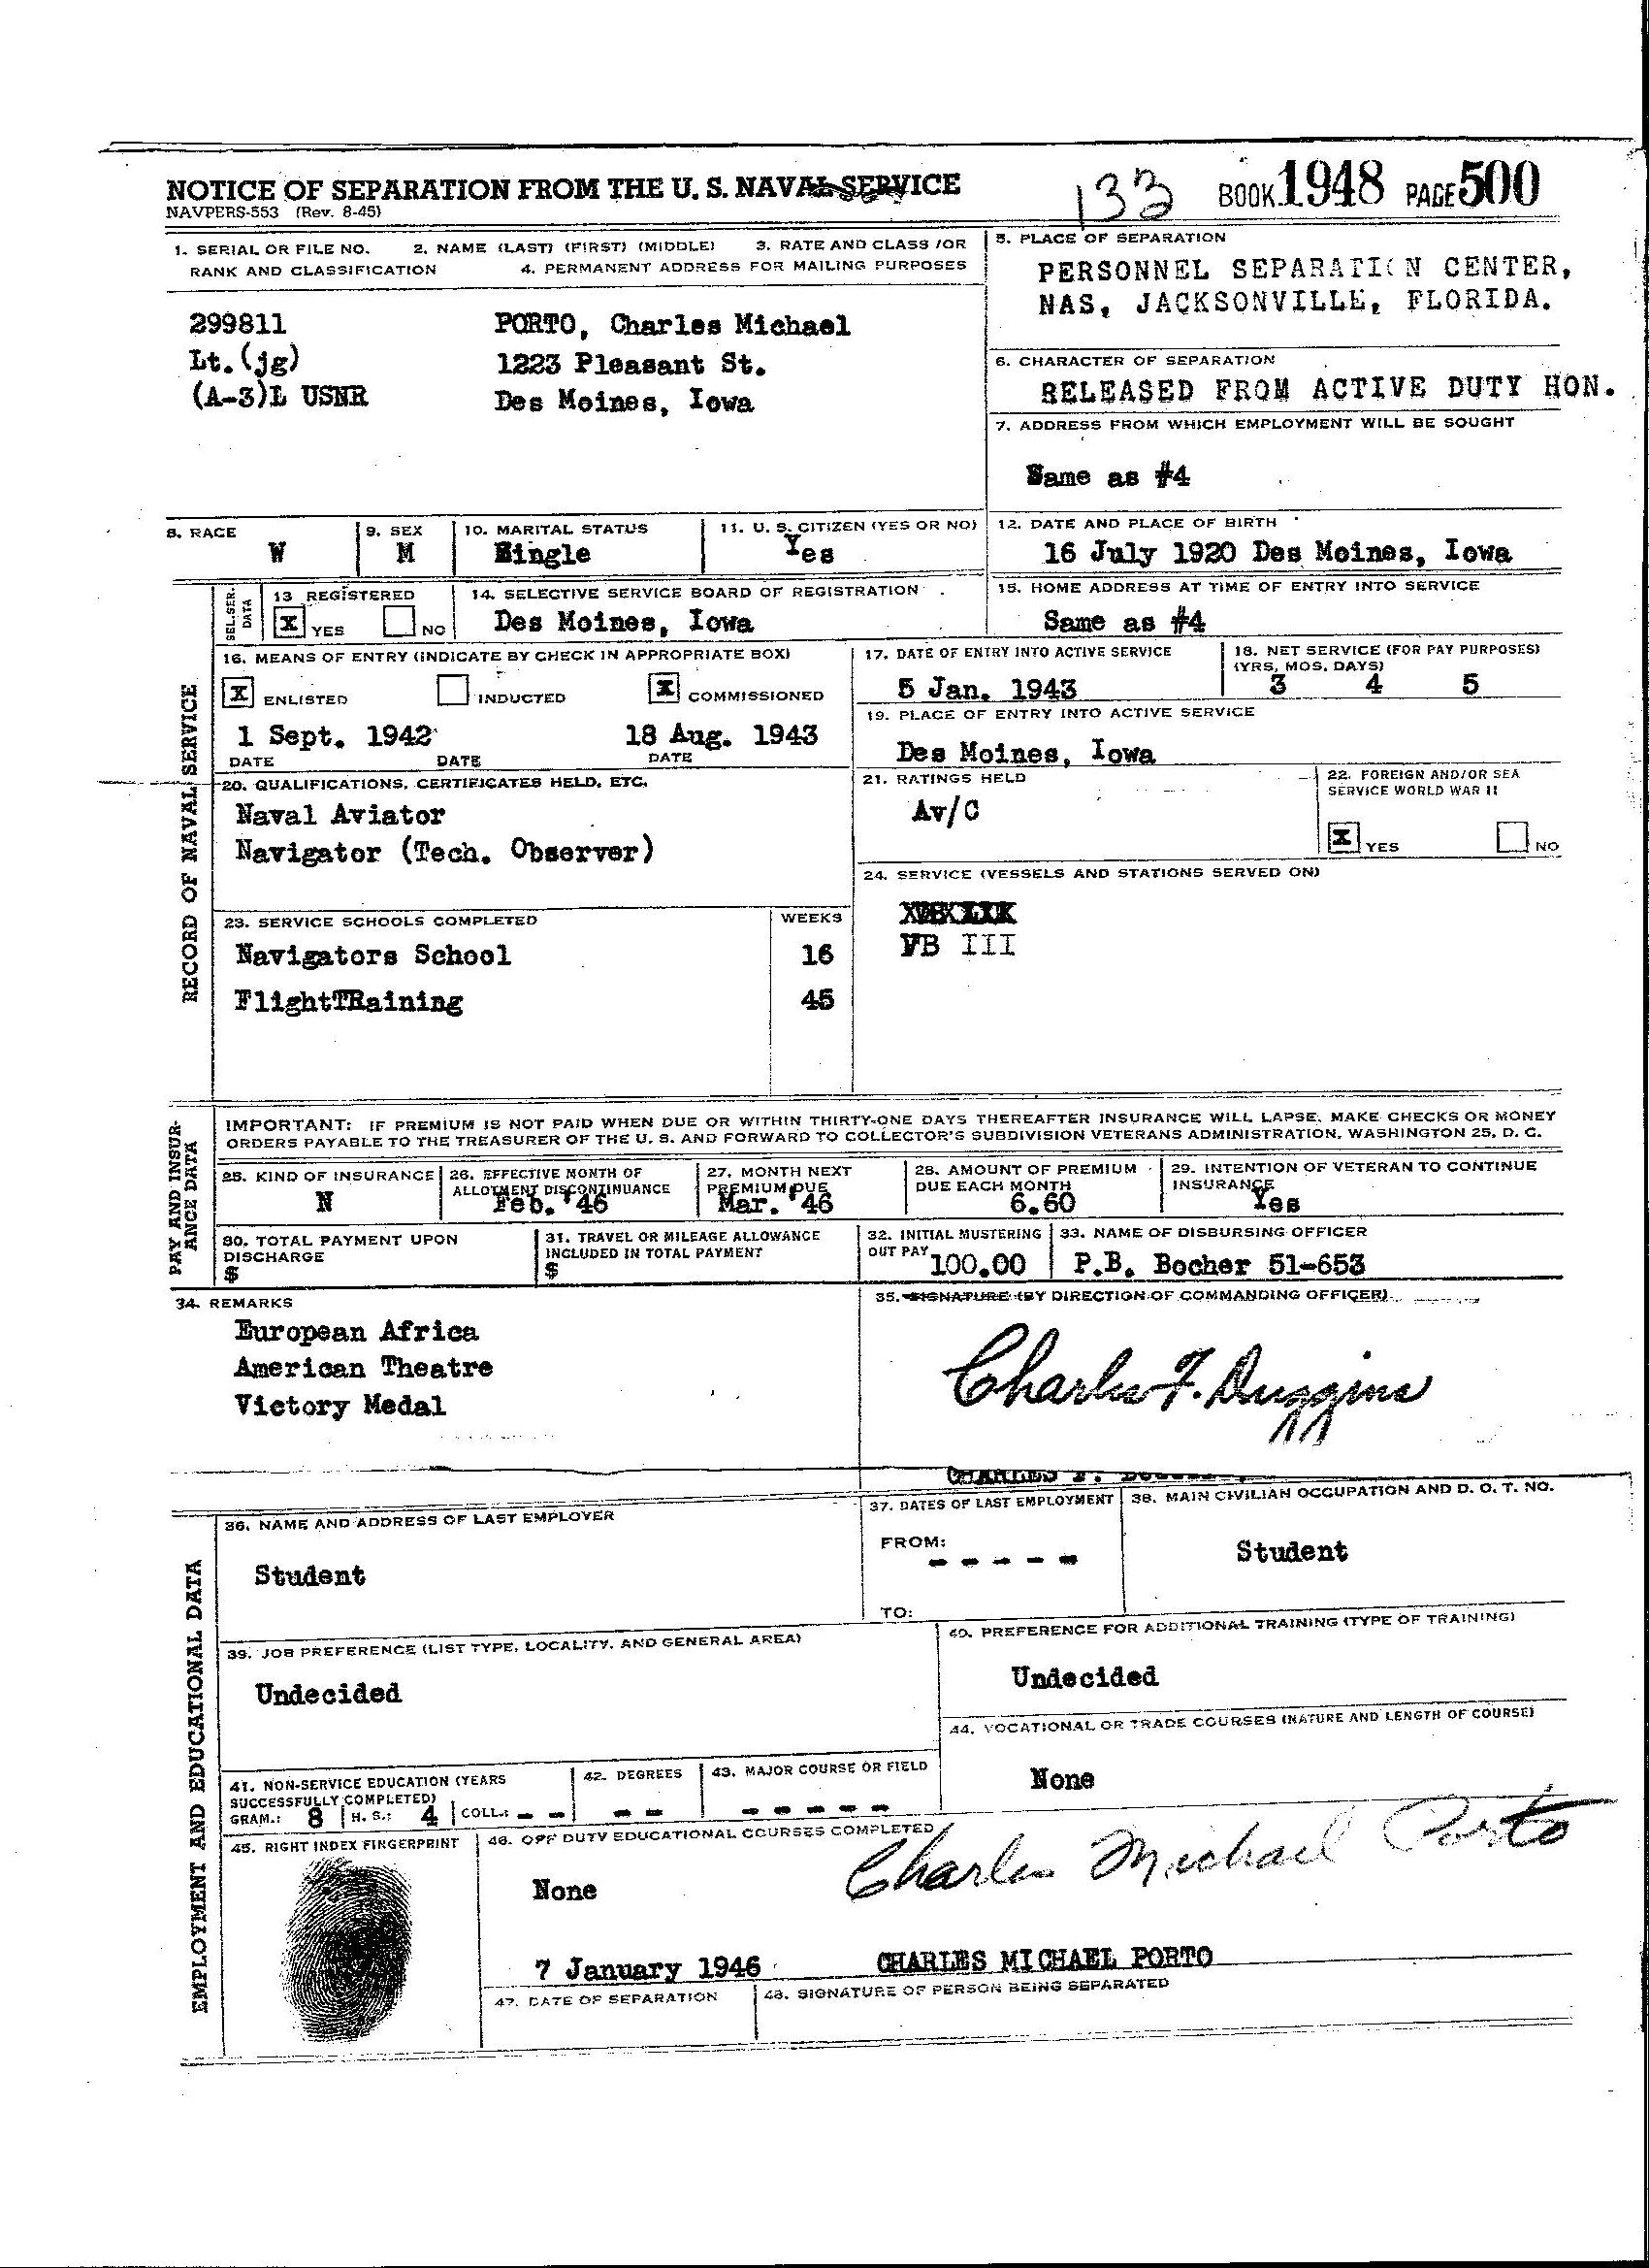 NOTICE OF SEPARATION FROM THE U. S. NAVAL SERVICE
NAVPERS-553 (Rev. 8-45)
133 BOOK 1948 PAGE 500
1. SERIAL OR FILE NO. 2. NAME (LAST) (FIRST) (MIDDLE) 3. RATE AND CLASS /OR
RANK AND CLASSIFICATION 4. PERMANENT ADDRESS FOR MAILING PURPOSES
299811 PORTO, Charles Michael
Lt.(jg) 1223 Pleasant St.
(A-3)L USNR Des Moines, Iowa
5. PLACE OF SEPARATION
PERSONNEL SEPARATION CENTER,
NAS, JACKSONVILLE, FLORIDA.
6. CHARACTER OF SEPARATION
RELEASED FROM ACTIVE DUTY HON.
7. ADDRESS FROM WHICH EMPLOYMENT WILL BE SOUGHT
Same as #4
8. RACE 9. SEX 10. MARITAL STATUS 11. U. S. CITIZEN (YES OR NO) 12. DATE AND PLACE OF BIRTH
W M Single Yes 16 July 1920 Des Moines, Iowa
SEL. SER. DATA
13 REGISTERED 14. SELECTIVE SERVICE BOARD OF REGISTRATION 15. HOME ADDRESS AT TIME OF ENTRY INTO SERVICE
X YES NO Des Moines, Iowa Same as #4
RECORD OF NAVAL SERVICE
16. MEANS OF ENTRY (INDICATE BY CHECK IN APPROPRIATE BOX)
X ENLISTED INDUCTED X COMMISSIONED
1 Sept. 1942 18 Aug. 1943
DATE DATE DATE
17. DATE OF ENTRY INTO ACTIVE SERVICE
5 Jan. 1943
18. NET SERVICE (FOR PAY PURPOSES)
(YRS, MOS. DAYS)
3 4 5
19. PLACE OF ENTRY INTO ACTIVE SERVICE
Des Moines, Iowa
20. QUALIFICATIONS, CERTIFICATES HELD, ETC.
Naval Aviator
Navigator (Tech. Observer)
21. RATINGS HELD
Av/C
22. FOREIGN AND/OR SEA
SERVICE WORLD WAR II
X YES NO
23. SERVICE SCHOOLS COMPLETED WEEKS
Navigators School 16
FlightTRaining 45
24. SERVICE (VESSELS AND STATIONS SERVED ON)
VB III
PAY AND INSURANCE DATA
IMPORTANT: IF PREMIUM IS NOT PAID WHEN DUE OR WITHIN THIRTY-ONE DAYS THEREAFTER INSURANCE WILL LAPSE. MAKE CHECKS OR MONEY
ORDERS PAYABLE TO THE TREASURER OF THE U. S. AND FORWARD TO COLLECTOR'S SUBDIVISION VETERANS ADMINISTRATION, WASHINGTON 25, D. C.
25. KIND OF INSURANCE
N
26. EFFECTIVE MONTH OF
ALLOTMENT DISCONTINUANCE
Feb. '46
27. MONTH NEXT
PREMIUM DUE
Mar. '46
28. AMOUNT OF PREMIUM
DUE EACH MONTH
6.60
29. INTENTION OF VETERAN TO CONTINUE
INSURANCE
Yes
30. TOTAL PAYMENT UPON
DISCHARGE
$
31. TRAVEL OR MILEAGE ALLOWANCE
INCLUDED IN TOTAL PAYMENT
$
32. INITIAL MUSTERING
OUT PAY 100.00
33. NAME OF DISBURSING OFFICER
P.B. Bocher 51-653
34. REMARKS
European Africa
American Theatre
Victory Medal
35. SIGNATURE (BY DIRECTION OF COMMANDING OFFICER)
Charles F. Duggins
CHARLES F.
EMPLOYMENT AND EDUCATIONAL DATA
36. NAME AND ADDRESS OF LAST EMPLOYER
Student
37. DATES OF LAST EMPLOYMENT
FROM:
- - - - -
TO:
38. MAIN CIVILIAN OCCUPATION AND D. O. T. NO.
Student
39. JOB PREFERENCE (LIST TYPE, LOCALITY, AND GENERAL AREA)
Undecided
40. PREFERENCE FOR ADDITIONAL TRAINING (TYPE OF TRAINING)
Undecided
41. NON-SERVICE EDUCATION (YEARS
SUCCESSFULLY COMPLETED)
GRAM.: 8 H. S.: 4 COLL.: - -
42. DEGREES
- -
43. MAJOR COURSE OR FIELD
- - - - -
44. VOCATIONAL OR TRADE COURSES (NATURE AND LENGTH OF COURSE)
None
45. RIGHT INDEX FINGERPRINT
46. OFF DUTY EDUCATIONAL COURSES COMPLETED
None
Charles Michael Porto
7 January 1946 CHARLES MICHAEL PORTO
47. DATE OF SEPARATION 48. SIGNATURE OF PERSON BEING SEPARATED